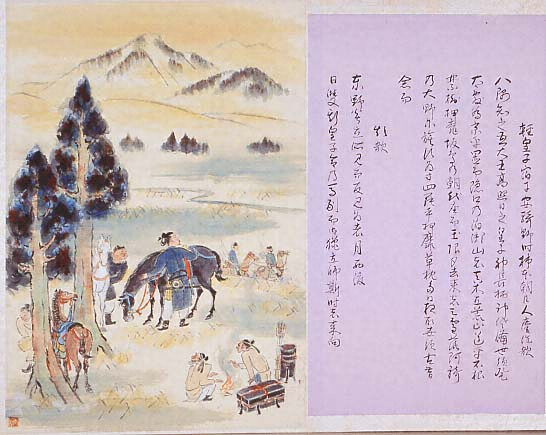 軽皇子宿于安騎野時柿本朝臣人麿作歌
八隅知之吾大王高照日之皇子神長柄神佐備世須登
太敷為京乎置而隠口乃泊瀬山者真木立荒山道乎石根
禁樹押靡坂鳥乃朝越座而玉限夕去来者三雪落阿騎
乃大野尓旗須為寸四能乎押靡草枕多日夜取世須古昔
念而
短歌
東野炎立所見而反見為者月西渡
日雙斯皇子命乃馬副而御猟立師斯時者来向